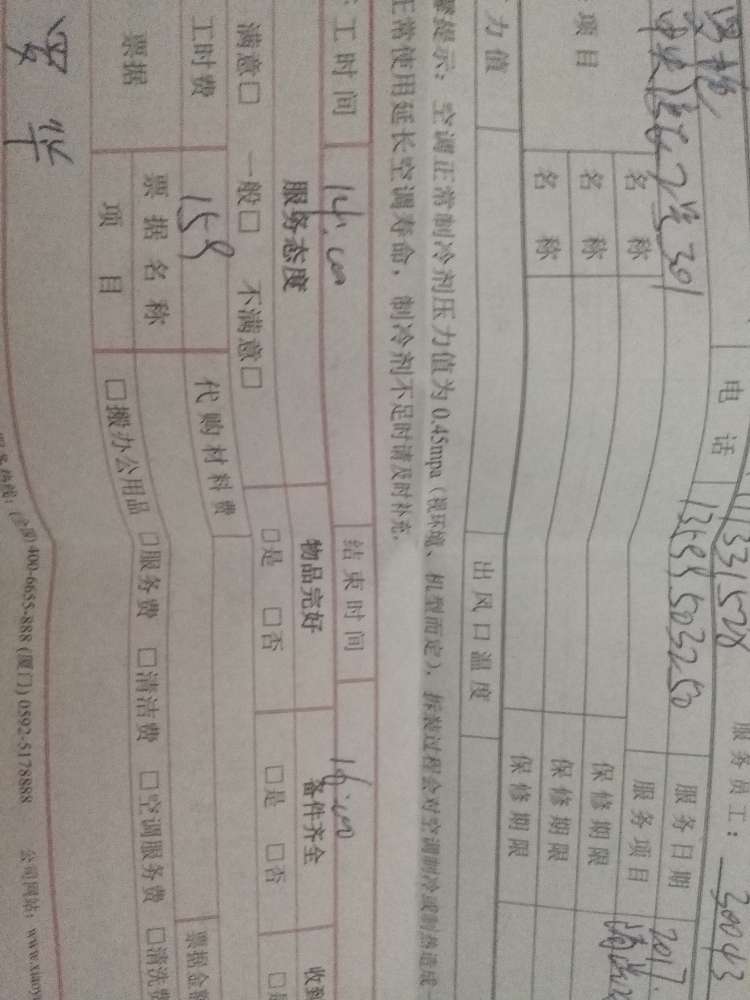 服务员工: 30043
11331528
电 话 13599503250 服务日期 2017.
301
项目 服务项目
名 称 保修期限
名 称 保修期限
名 称 保修期限
力值 出风口温度
提示: 空调正常制冷剂压力值为 0.45mpa (视环境、机型而定), 拆装过程会对空调制冷或制热造成
正常使用延长空调寿命, 制冷剂不足时请及时补充。
工时间 14:00 结束时间 16:00
服务态度 物品完好 备件齐全 收到
满意□ 一般□ 不满意□ □是 □否 □是 □否
工时费 159 代购材料费 票据金额
票据 票据名称
项 目 □搬办公用品 □服务费 □清洁费 □空调服务费 □清洗费
服务热线: (全国) 400-6655-888 (厦门) 0592-5178888 公司网站: www.